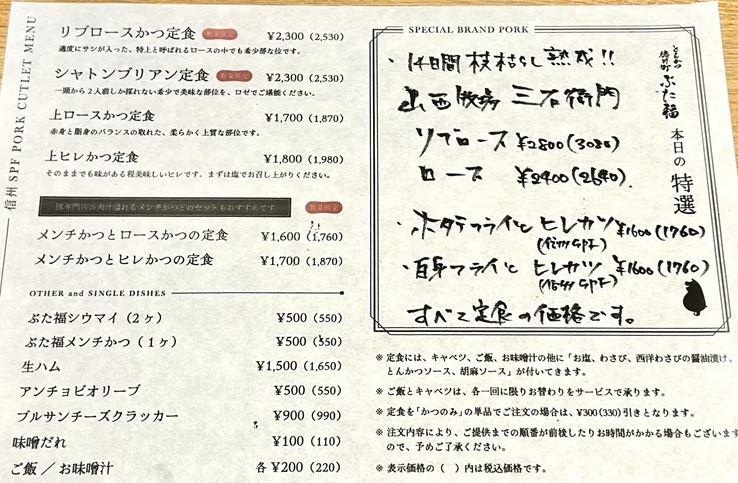 信州 SPF PORK CUTLET MENU
リブロースかつ定食 数量限定 ¥2,300 (2,530)
適度にサシが入った、特上と呼ばれるロースの中でも希少部な位です。
シャトンブリアン定食 数量限定 ¥2,300 (2,530)
一頭から2人前しか採れない希少で美味な部位を、ロゼでご堪能ください。
上ロースかつ定食 ¥1,700 (1,870)
赤身と脂身のバランスの取れた、柔らかく上質な部位です。
上ヒレかつ定食 ¥1,800 (1,980)
そのままでも味がある程美味しいヒレです。まずは塩でお召し上がりください。
豚専門店の肉汁溢れるメンチかつとのセットもおすすめです 数量限定
メンチかつとロースかつの定食 ¥1,600 (1,760)
メンチかつとヒレかつの定食 ¥1,700 (1,870)
OTHER and SINGLE DISHES
ぶた福シウマイ(2ヶ) ¥500 (550)
ぶた福メンチかつ(1ヶ) ¥500 (550)
生ハム ¥1,500 (1,650)
アンチョビオリーブ ¥500 (550)
ブルサンチーズクラッカー ¥900 (990)
味噌だれ ¥100 (110)
ご飯/お味噌汁 各¥200 (220)
SPECIAL BRAND PORK
とんかつ
ぶた福
本日の特選
・14日間枝枯らし熟成!!
山西牧場 三右衛門
リブロース ¥2800(3080)
ロース ¥2400(2640)
・ホタテフライと ヒレカツ ¥1600(1760)
(信州SPF)
・白身フライと ヒレカツ ¥1600(1760)
(信州SPF)
すべて定食の価格です。
※定食には、キャベツ、ご飯、お味噌汁の他に「お塩、わさび、西洋わさびの醤油漬け、
とんかつソース、胡麻ソース」が付いてきます。
※ご飯とキャベツは、各一回に限りお替わりをサービスで承ります。
※定食を「かつのみ」の単品でご注文の場合は、¥300(330)引きとなります。
※注文内容により、ご提供までの順番が前後したりお時間がかかる場合もございます
ので、予めご了承ください。
※表示価格の( )内は税込価格です。